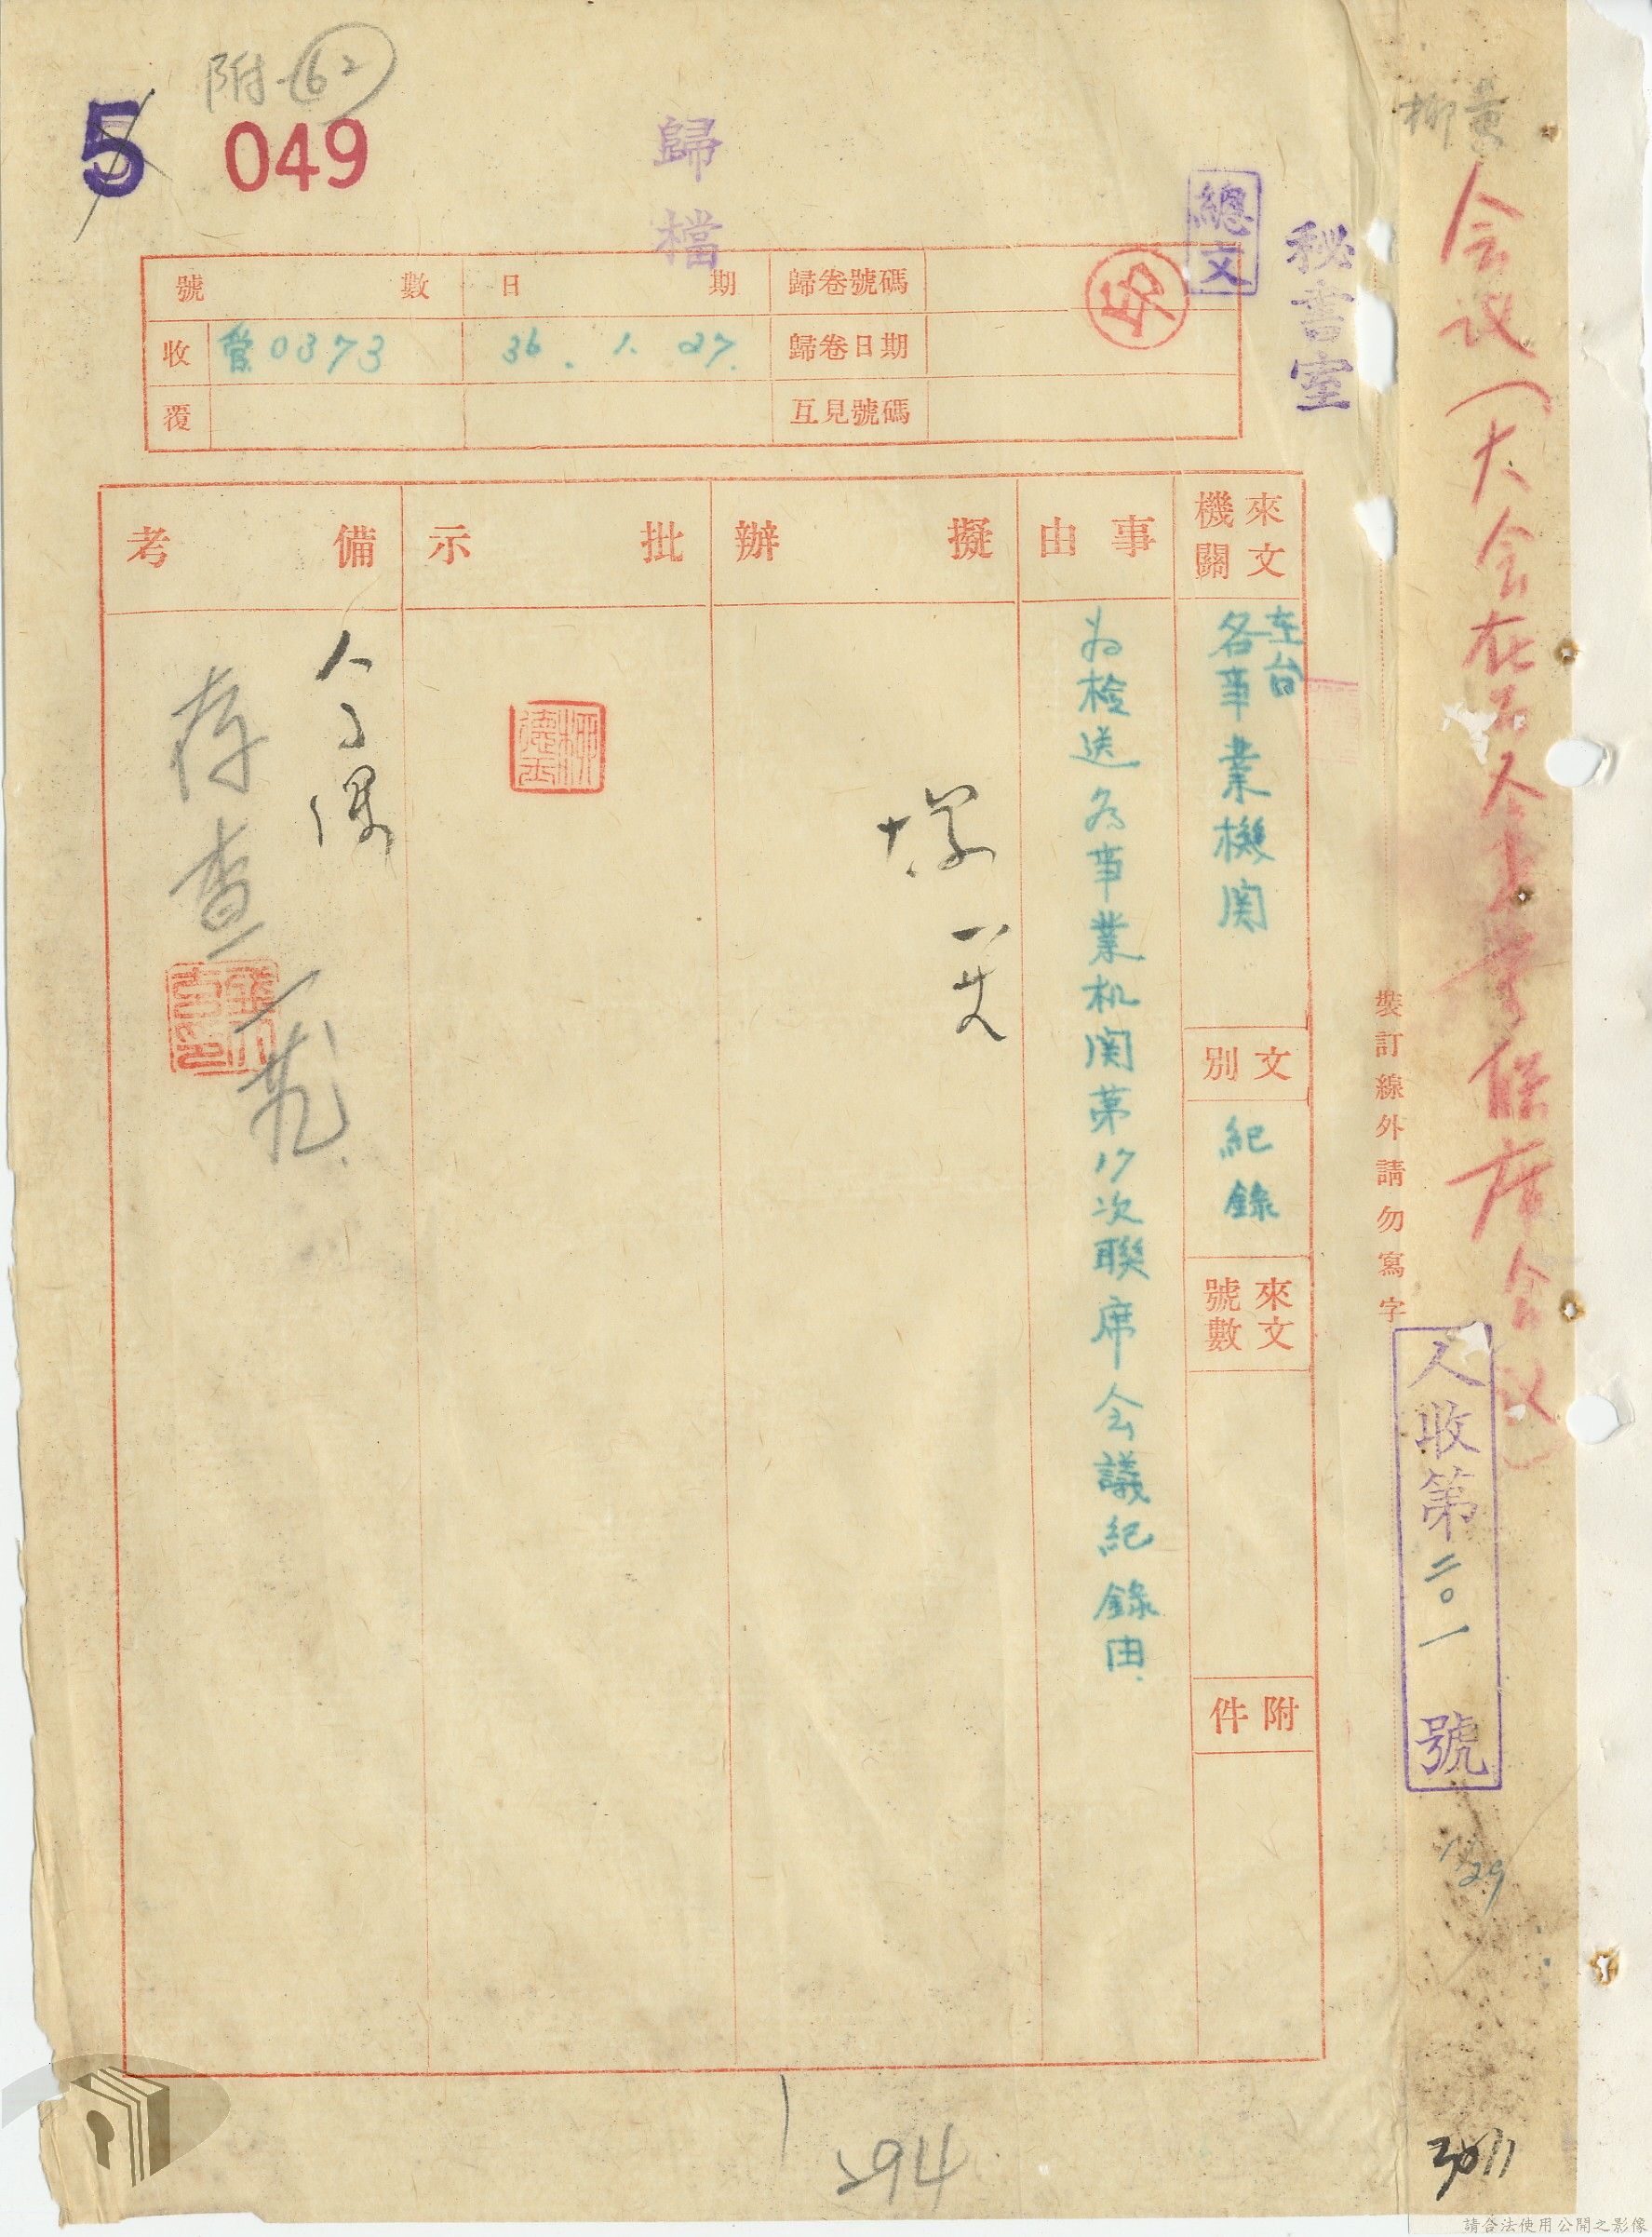 附-62
5 049
歸檔
總文
秘書室
號數 日期 歸卷號碼
收 營0373 36.1.27. 歸卷日期
覆 互見號碼
保
來文機關
在台各事業機関
文別
紀錄
來文號數
附件
事由
為檢送各事業机関第17次聯席会議紀錄由.
擬辦
批示
備考
存查
裝訂線外請勿寫字
会议(大会在
联席会议)
人收第二〇一號
1/29
294
3011
請合法使用公開之影像